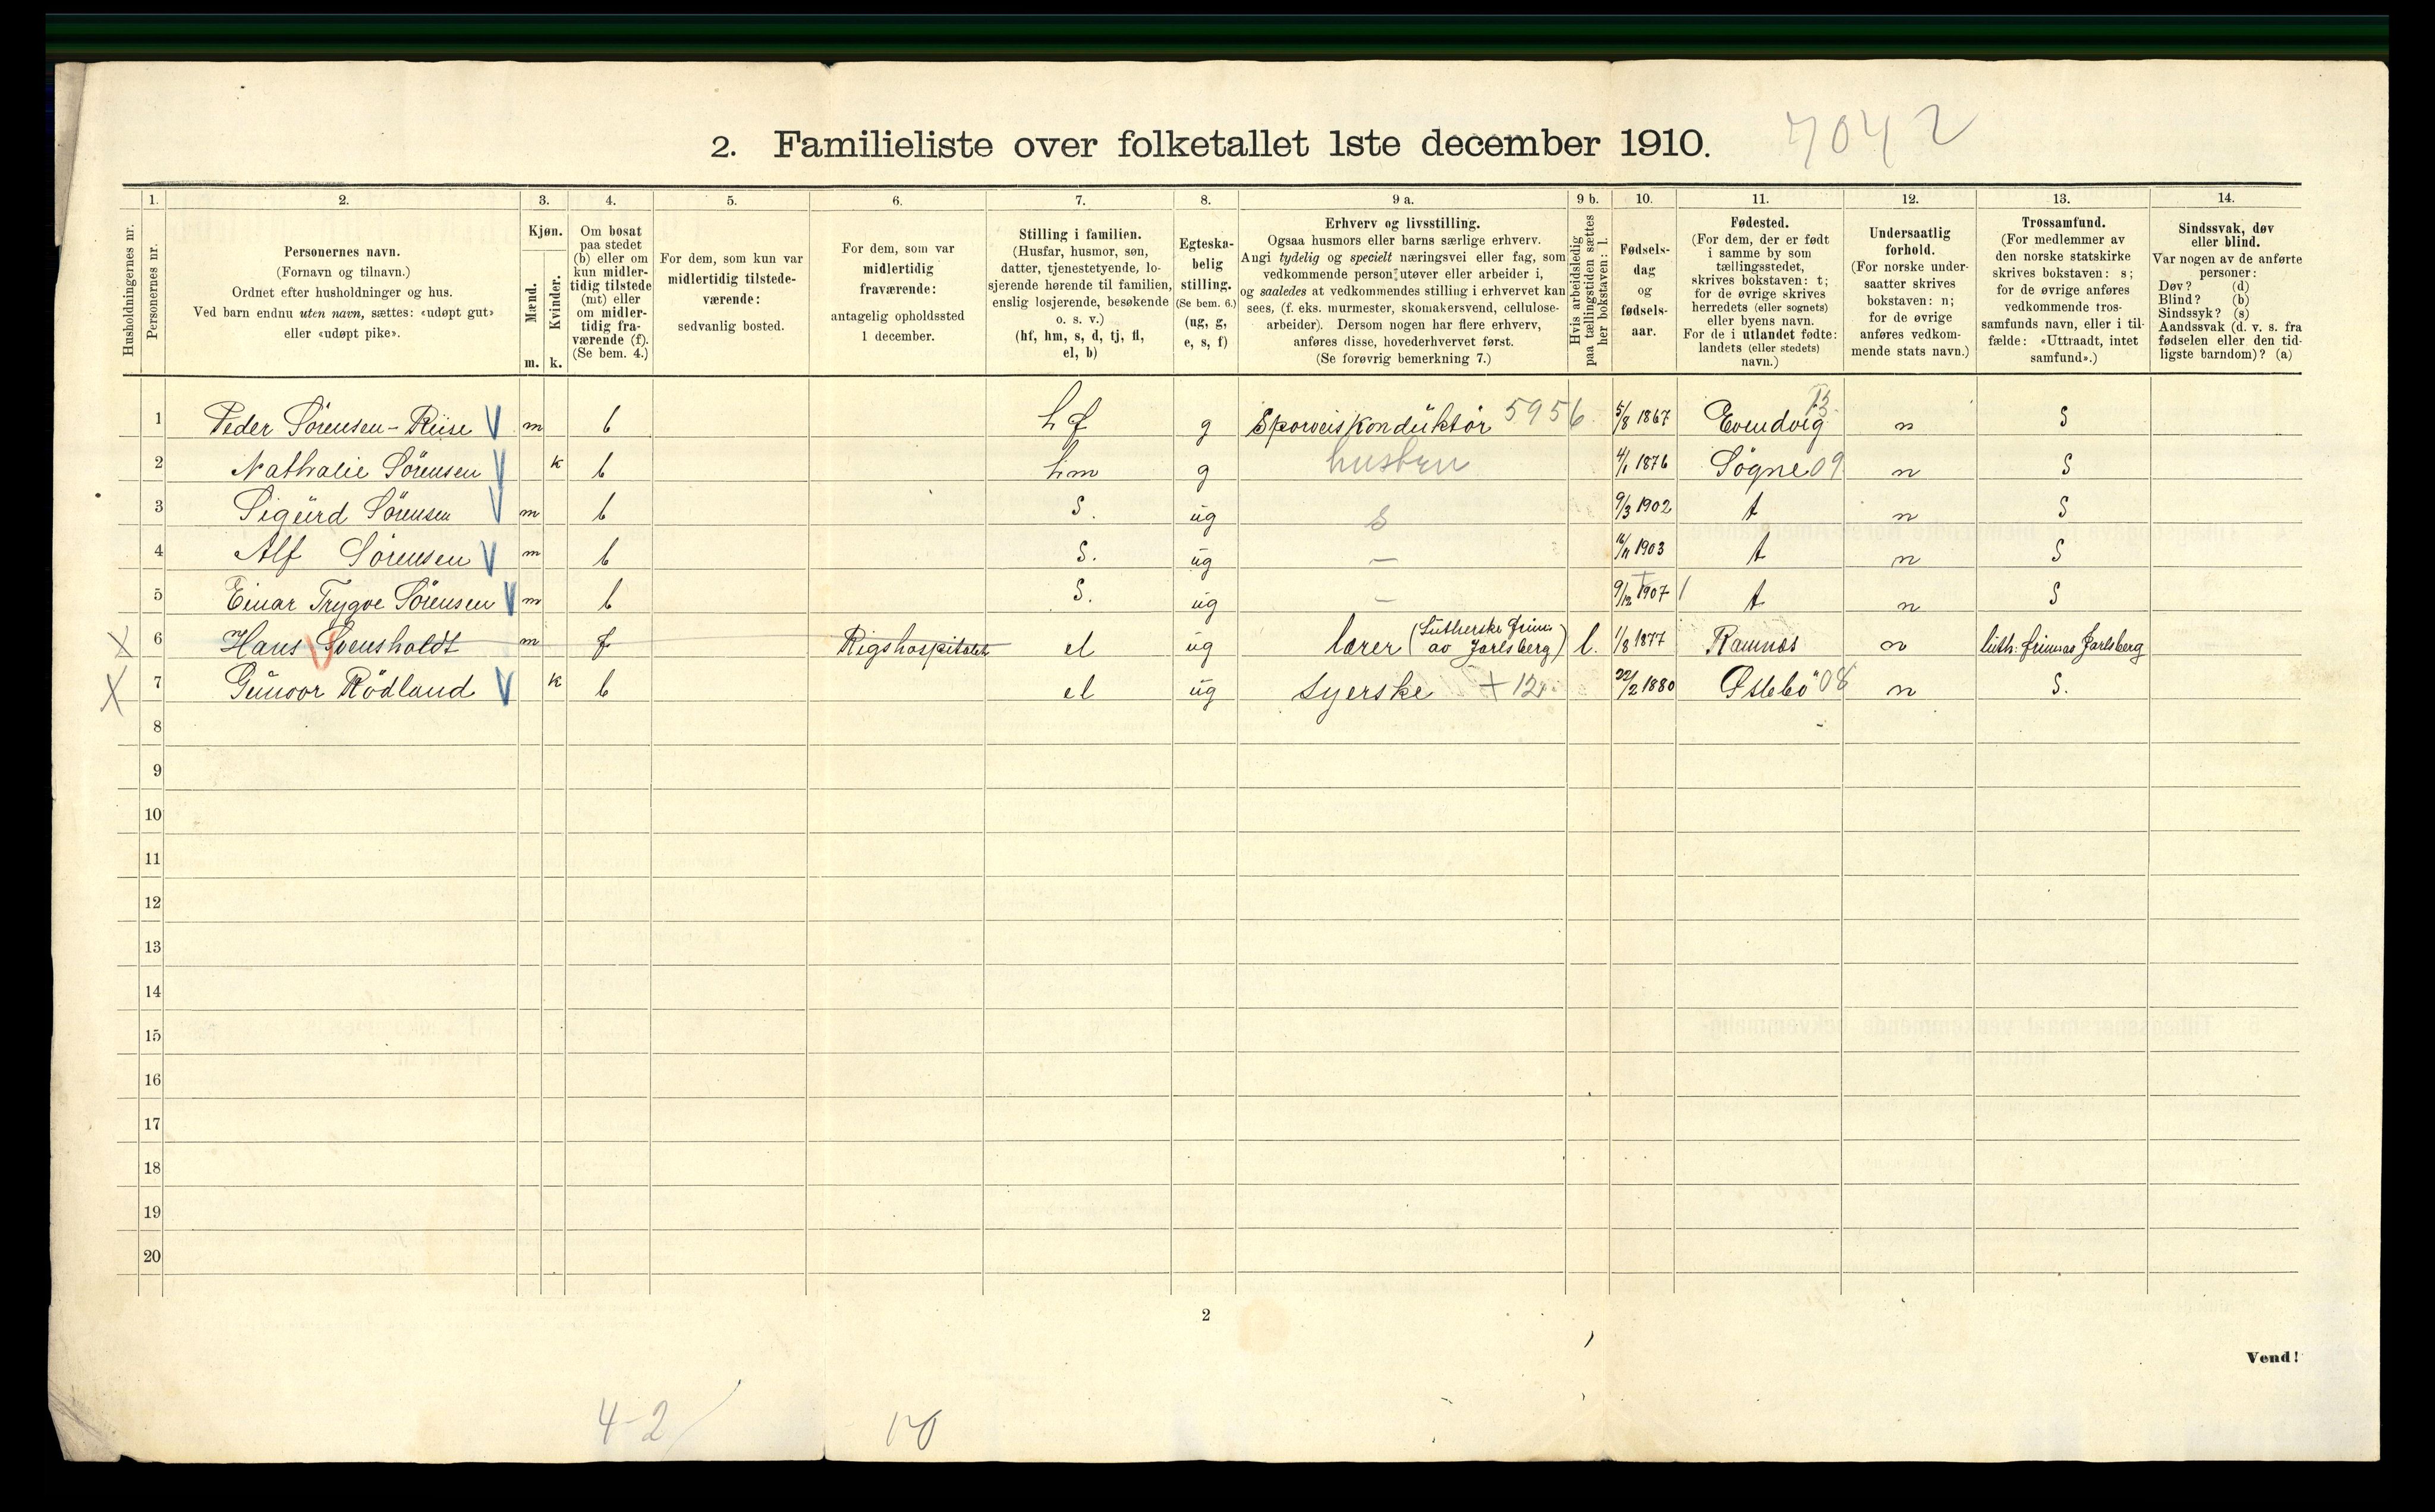 2. Familieliste over folketallet 1ste december 1910. 7042
Husholdningernes nr.
1. Personernes nr.
2. Personernes navn. (Fornavn og tilnavn.) Ordnet efter husholdninger og hus. Ved barn endnu uten navn, sættes: «udøpt gut» eller «udøpt pike».
3. Kjøn. Mænd. m. Kvinder. k.
4. Om bosat paa stedet (b) eller om kun midlertidig tilstede (mt) eller om midlertidig fraværende (f). (Se bem. 4.)
5. For dem, som kun var midlertidig tilstedeværende: sedvanlig bosted.
6. For dem, som var midlertidig fraværende: antagelig opholdssted 1 december.
7. Stilling i familien. (Husfar, husmor, søn, datter, tjenestetyende, losjerende hørende til familien, enslig losjerende, besøkende o. s. v.) (hf, hm, s, d, tj, fl, el, b)
8. Egteskabelig stilling. (Se bem. 6.) (ug, g, e, s, f)
9 a. Erhverv og livsstilling. Ogsaa husmors eller barns særlige erhverv. Angi tydelig og specielt næringsvei eller fag, som vedkommende person utøver eller arbeider i, og saaledes at vedkommendes stilling i erhvervet kan sees, (f. eks. murmester, skomakersvend, cellulosearbeider). Dersom nogen har flere erhverv, anføres disse, hovederhvervet først. (Se forøvrig bemerkning 7.)
9 b. Hvis arbeidsledig paa tællingstiden sættes her bokstaven: l.
10. Fødselsdag og fødselsaar.
11. Fødested. (For dem, der er født i samme by som tællingsstedet, skrives bokstaven: t; for de øvrige skrives herredets (eller sognets) eller byens navn. For de i utlandet fødte: landets (eller stedets) navn.)
12. Undersaatlig forhold. (For norske undersaatter skrives bokstaven: n; for de øvrige anføres vedkommende stats navn.)
13. Trossamfund. (For medlemmer av den norske statskirke skrives bokstaven: s; for de øvrige anføres vedkommende trossamfunds navn, eller i tilfælde: «Uttraadt, intet samfund».)
14. Sindssvak, døv eller blind. Var nogen av de anførte personer: Døv? (d) Blind? (b) Sindssyk? (s) Aandssvak (d. v. s. fra fødselen eller den tidligste barndom)? (a)
1 Peder Sörensen-Riise V m b hf g Sporveiskonduktör 5956 5/8 1867 Evendvig 13 n S
2 Nathalie Sörensen V k b hm g husbru 4/1 1876 Sögne 09 n S
3 Sigurd Sörensen V m b S. ug s 9/3 1902 t n S
4 Alf Sörensen V m b S. ug — 16/11 1903 t n S
5 Einar Trygve Sörensen V m b S. ug — 9/12 1907 t n S
X 6 Hans Svensholdt V m f Rigshospitalet el ug lærer (Lutherske frim. av Jarlsberg) l. 1/8 1877 Ramnæs n luth. frim. av Jarlsberg
X 7 Gunvor Rödland V k b el ug Syerske + 12 22/2 1880 Ølebö 08 n S.
8
9
10
11
12
13
14
15
16
17
18
19
20
2
Vend!
4-2 10